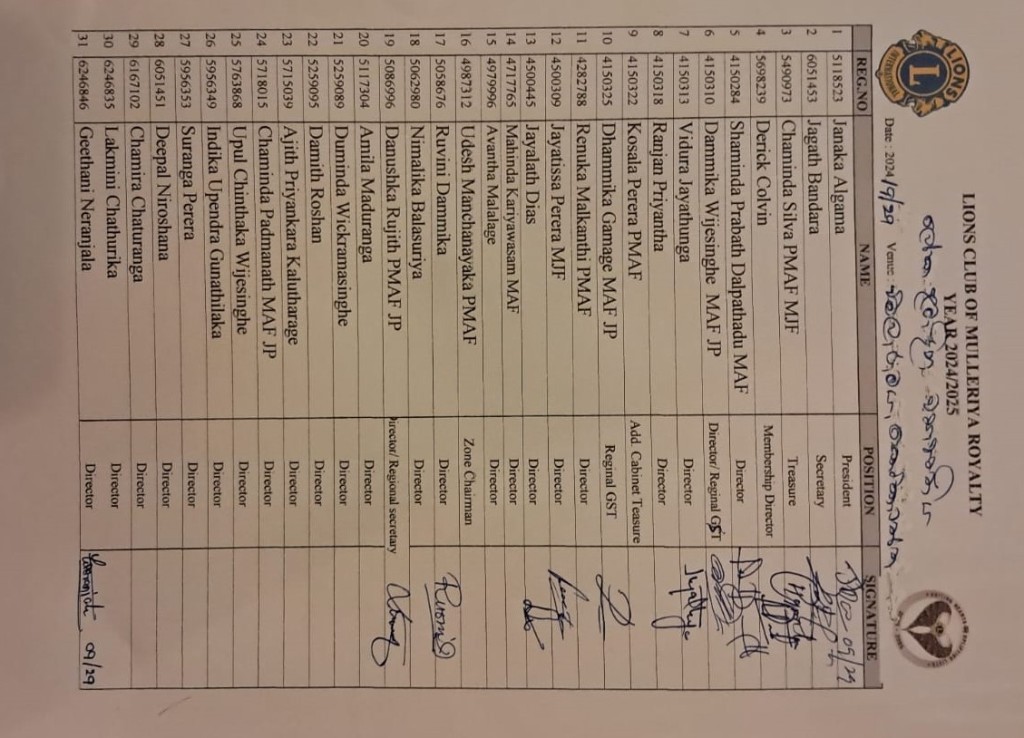 LIONS CLUB OF MULLERIYA ROYALTY
YEAR 2024/2025
LIONS
L
INTERNATIONAL
Date : 2024/9/29 Venue :
REG.NO NAME POSITION SIGNATURE
1 5118523 Janaka Algama President 09/29
2 6051453 Jagath Bandara Secretary
3 5490973 Chaminda Silva PMAF MJF Treasure
4 5698239 Derrick Colvin Membership Director
5 4150284 Shaminda Prabath Dalpathadu MAF Director
6 4150310 Dammika Wijesinghe MAF JP Director/ Reginal GST
7 4150313 Vidura Jayathunga Director
8 4150318 Ranjan Priyantha Director
9 4150322 Kosala Perera PMAF Add. Cabinet Teasure
10 4150325 Dhammika Gamage MAF JP Reginal GST
11 4282788 Renuka Malkanthi PMAF Director
12 4500309 Jayatissa Perera MJF Director
13 4500445 Jayalath Dias Director
14 4717765 Mahinda Kariyawasam MAF Director
15 4979996 Avantha Malalage Director
16 4987312 Udesh Manchanayaka PMAF Zone Chairman
17 5058676 Ruvini Dammika Director
18 5062980 Nimalika Balasuriya Director
19 5086996 Danushka Rujith PMAF JP Director/ Regional secretary
20 5117304 Amila Maduranga Director
21 5259089 Duminda Wickramasinghe Director
22 5259095 Damith Roshan Director
23 5715039 Ajith Priyankara Kalutharage Director
24 5718015 Chaminda Padmanath MAF JP Director
25 5763868 Upul Chinthaka Wijesinghe Director
26 5956349 Indika Upendra Gunathilaka Director
27 5956353 Suranga Perera Director
28 6051451 Deepal Niroshana Director
29 6167102 Chamira Chaturanga Director
30 6246835 Lakmini Chathurika Director
31 6246846 Geethani Neranjala Director 09/29